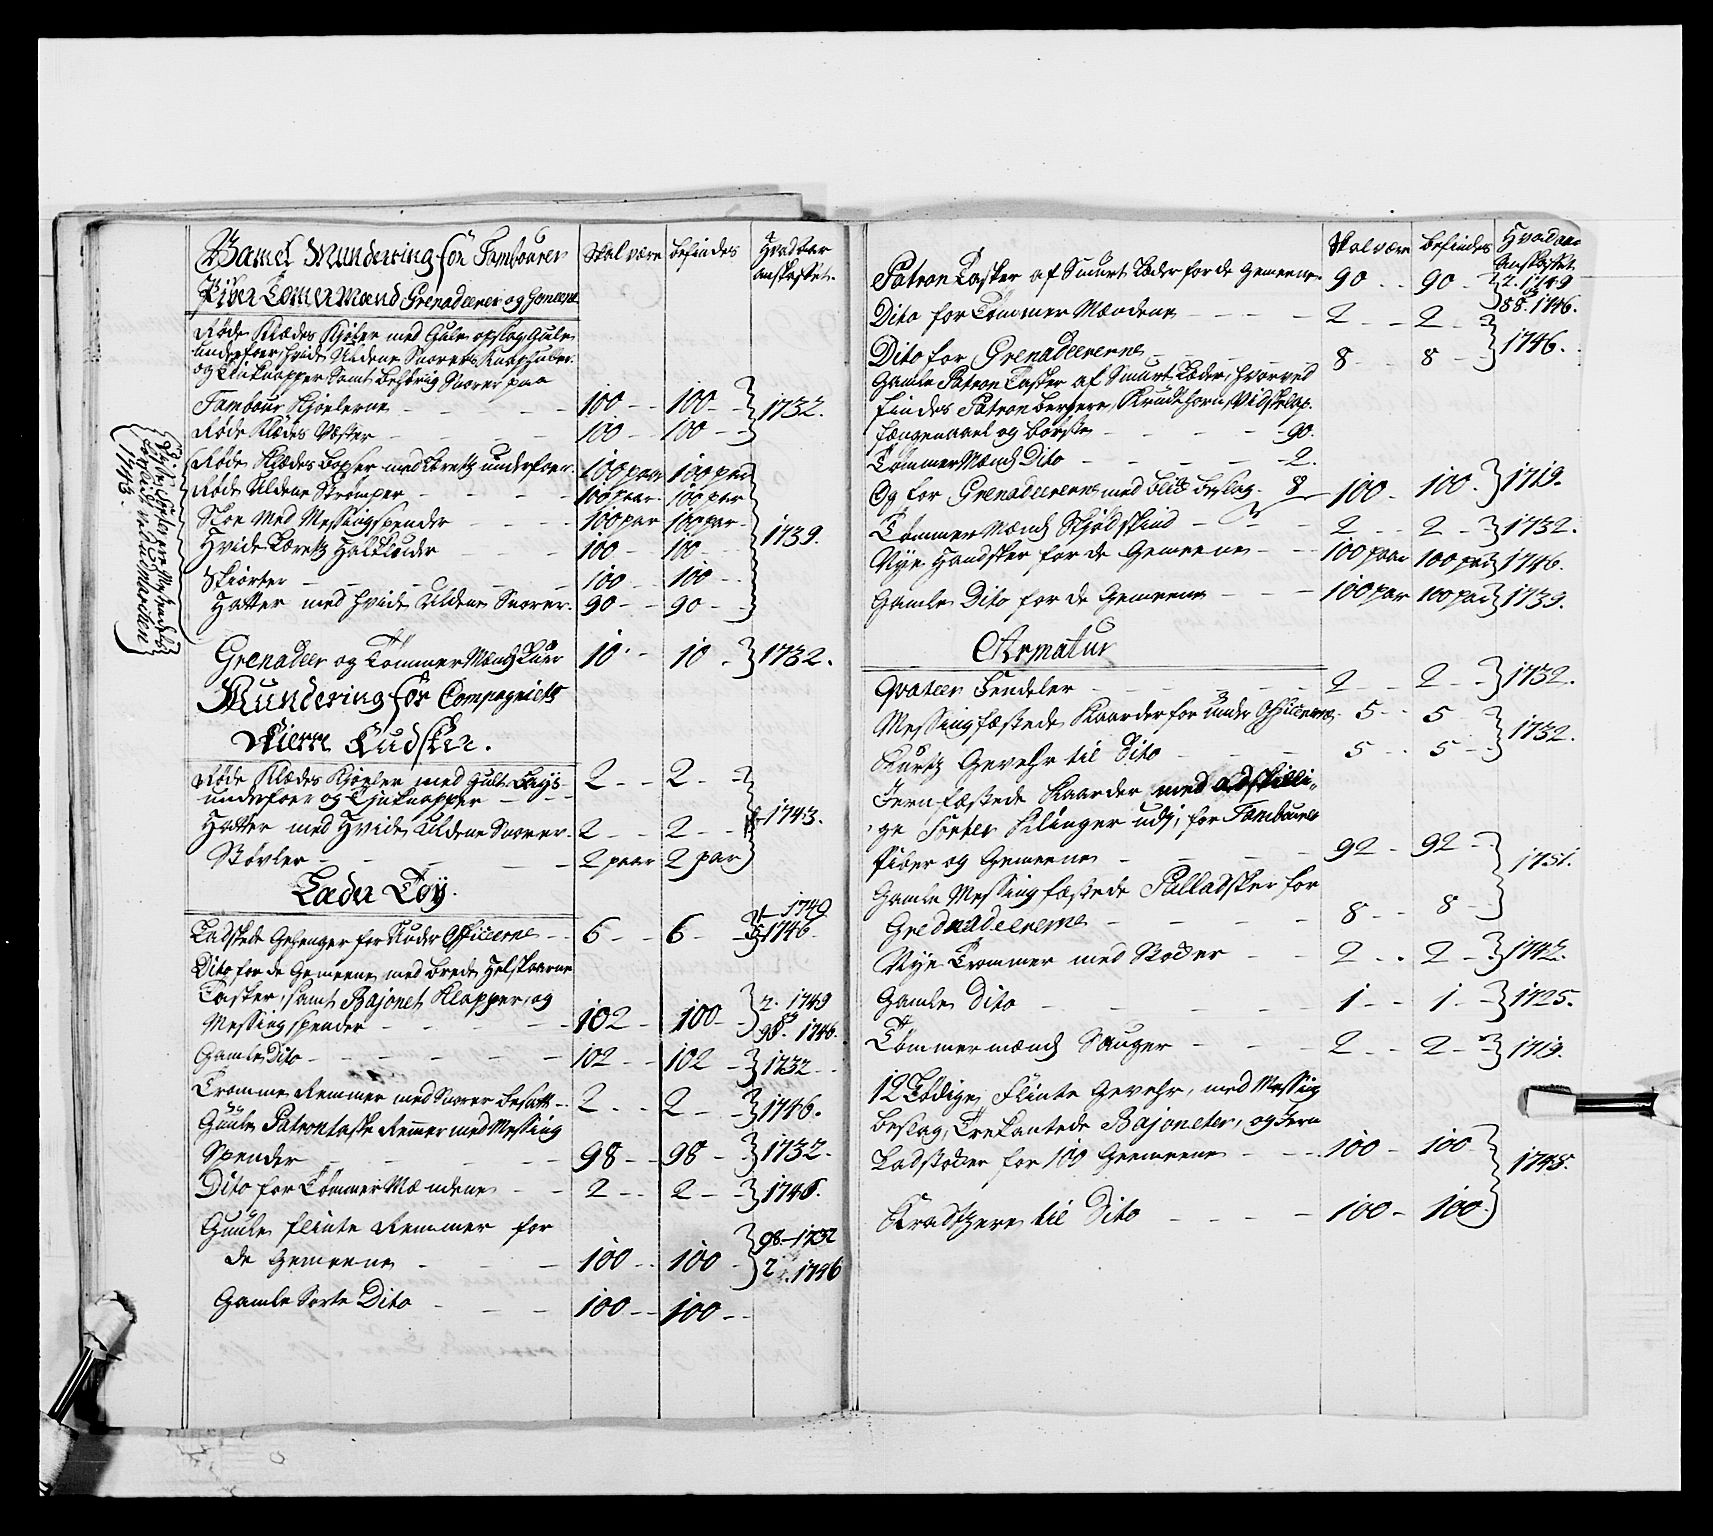 Gamel Mundering for Tambourer Skal være befindes Hvad aar
Piber Tømermænd Grenadeerer og Gemeene anskaffet
Røde Klædes Kjoler med Gule opslag Gule
underfoer hvide Uldene Snorer Knaphuller
og Tinknapper samt behørig Snorer paa
Tambour Kjolerne 100 100 1732.
Røde Klædes Vester 100 100
Røde Klædes Boxer med Lerretz underfoer 100 paar 100 par
Røde Uldene Strømper 100 paar 100 par
Skoe Med Messingspender 100 par 100 par
Hvide Lerretz Halskluder 100 100 1739.
Skiorter 100 100
Hatter med hvide Uldene Snorer 90 90
Grenadeer og Tømmer Mændz Luer 10 10 1732.
Mundering for Compagniets
Kierre Kudsker.
Røde Klædes Kjoler med Gult Bays 2 2
underfoer og Tinknapper
Hatter med Hvide Uldene Snorer 2 2 1743.
Støvler 2 paar 2 par
Læder Tøy.
Ladstede Gehenger for Under Officeerne 6 6 1 1749 5 1746
Dito for de Gemeene med brede Helskaarne
Tasker, samt Bajonet Klapper, og
Messing spender 102 100 2. 1749 og 98. 1746.
Gamle Dito 102 102 1732
Tromme Remmer med Snorer besatt 2 2 1746.
Guule Patrontaske Remer med Messing
Spender 98 98 1732.
Dito for Tømmer Mændene 2 2 1746.
Guule flinte Remmer for
de Gemeene 100 100 98 1732 2 1746
Gamle Sorte Dito 100 100
1743.
Skal være befindes Hvad aar
Anskaffet
Patron Tasker af Smurt Læder for de Gemeene 90 90 2. 1749 og 88. 1746.
Dito for Tømmer Mændene 2 2
Dito for Grenadeererne 8 8 1746.
Gamle Patron Tasker af Smurt Læder, hvorved
findes Patron bersere, Krudthorn, Vidskelap.
fængenaael og børste 90.
Tømmer Mændz Dito 2.
Og for Grenadeererne med blik beslag 8 100 100 1719.
Tømmer Mændz Skjødskind 2 2 1732.
Nye Handsker for de Gemeene 100 paar 100 par 1746.
Gamle Dito for de Gemeene 100 par 100 par 1739.
Armatur
Qvateer Fendeler 2 2 1732.
Messingfæstede Kaarder for under Officeerne 5 5
Kurtz Gevehr til Dito 5 5 1732.
Jernfæstede Kaarder med adskilli-
ge Sorter Klinger udj, for Tambourer
Piber og Gemeene 92 92
1731.
Gamle Messingfæstede Palladsker for
Grednadeererne 8 8
Nye Trommer med Stokker 2 2 1742.
Gamle Dito 1 1 1725.
Tømmermændz Sauger 2 2 1719.
12 Lødige Flinte Gevehr, med Messing
beslag, Trekantede Bajoneter, og Jern
Ladstokker for 100 Gemeene 100 100 1748.
Kradsere til Dito 100 100